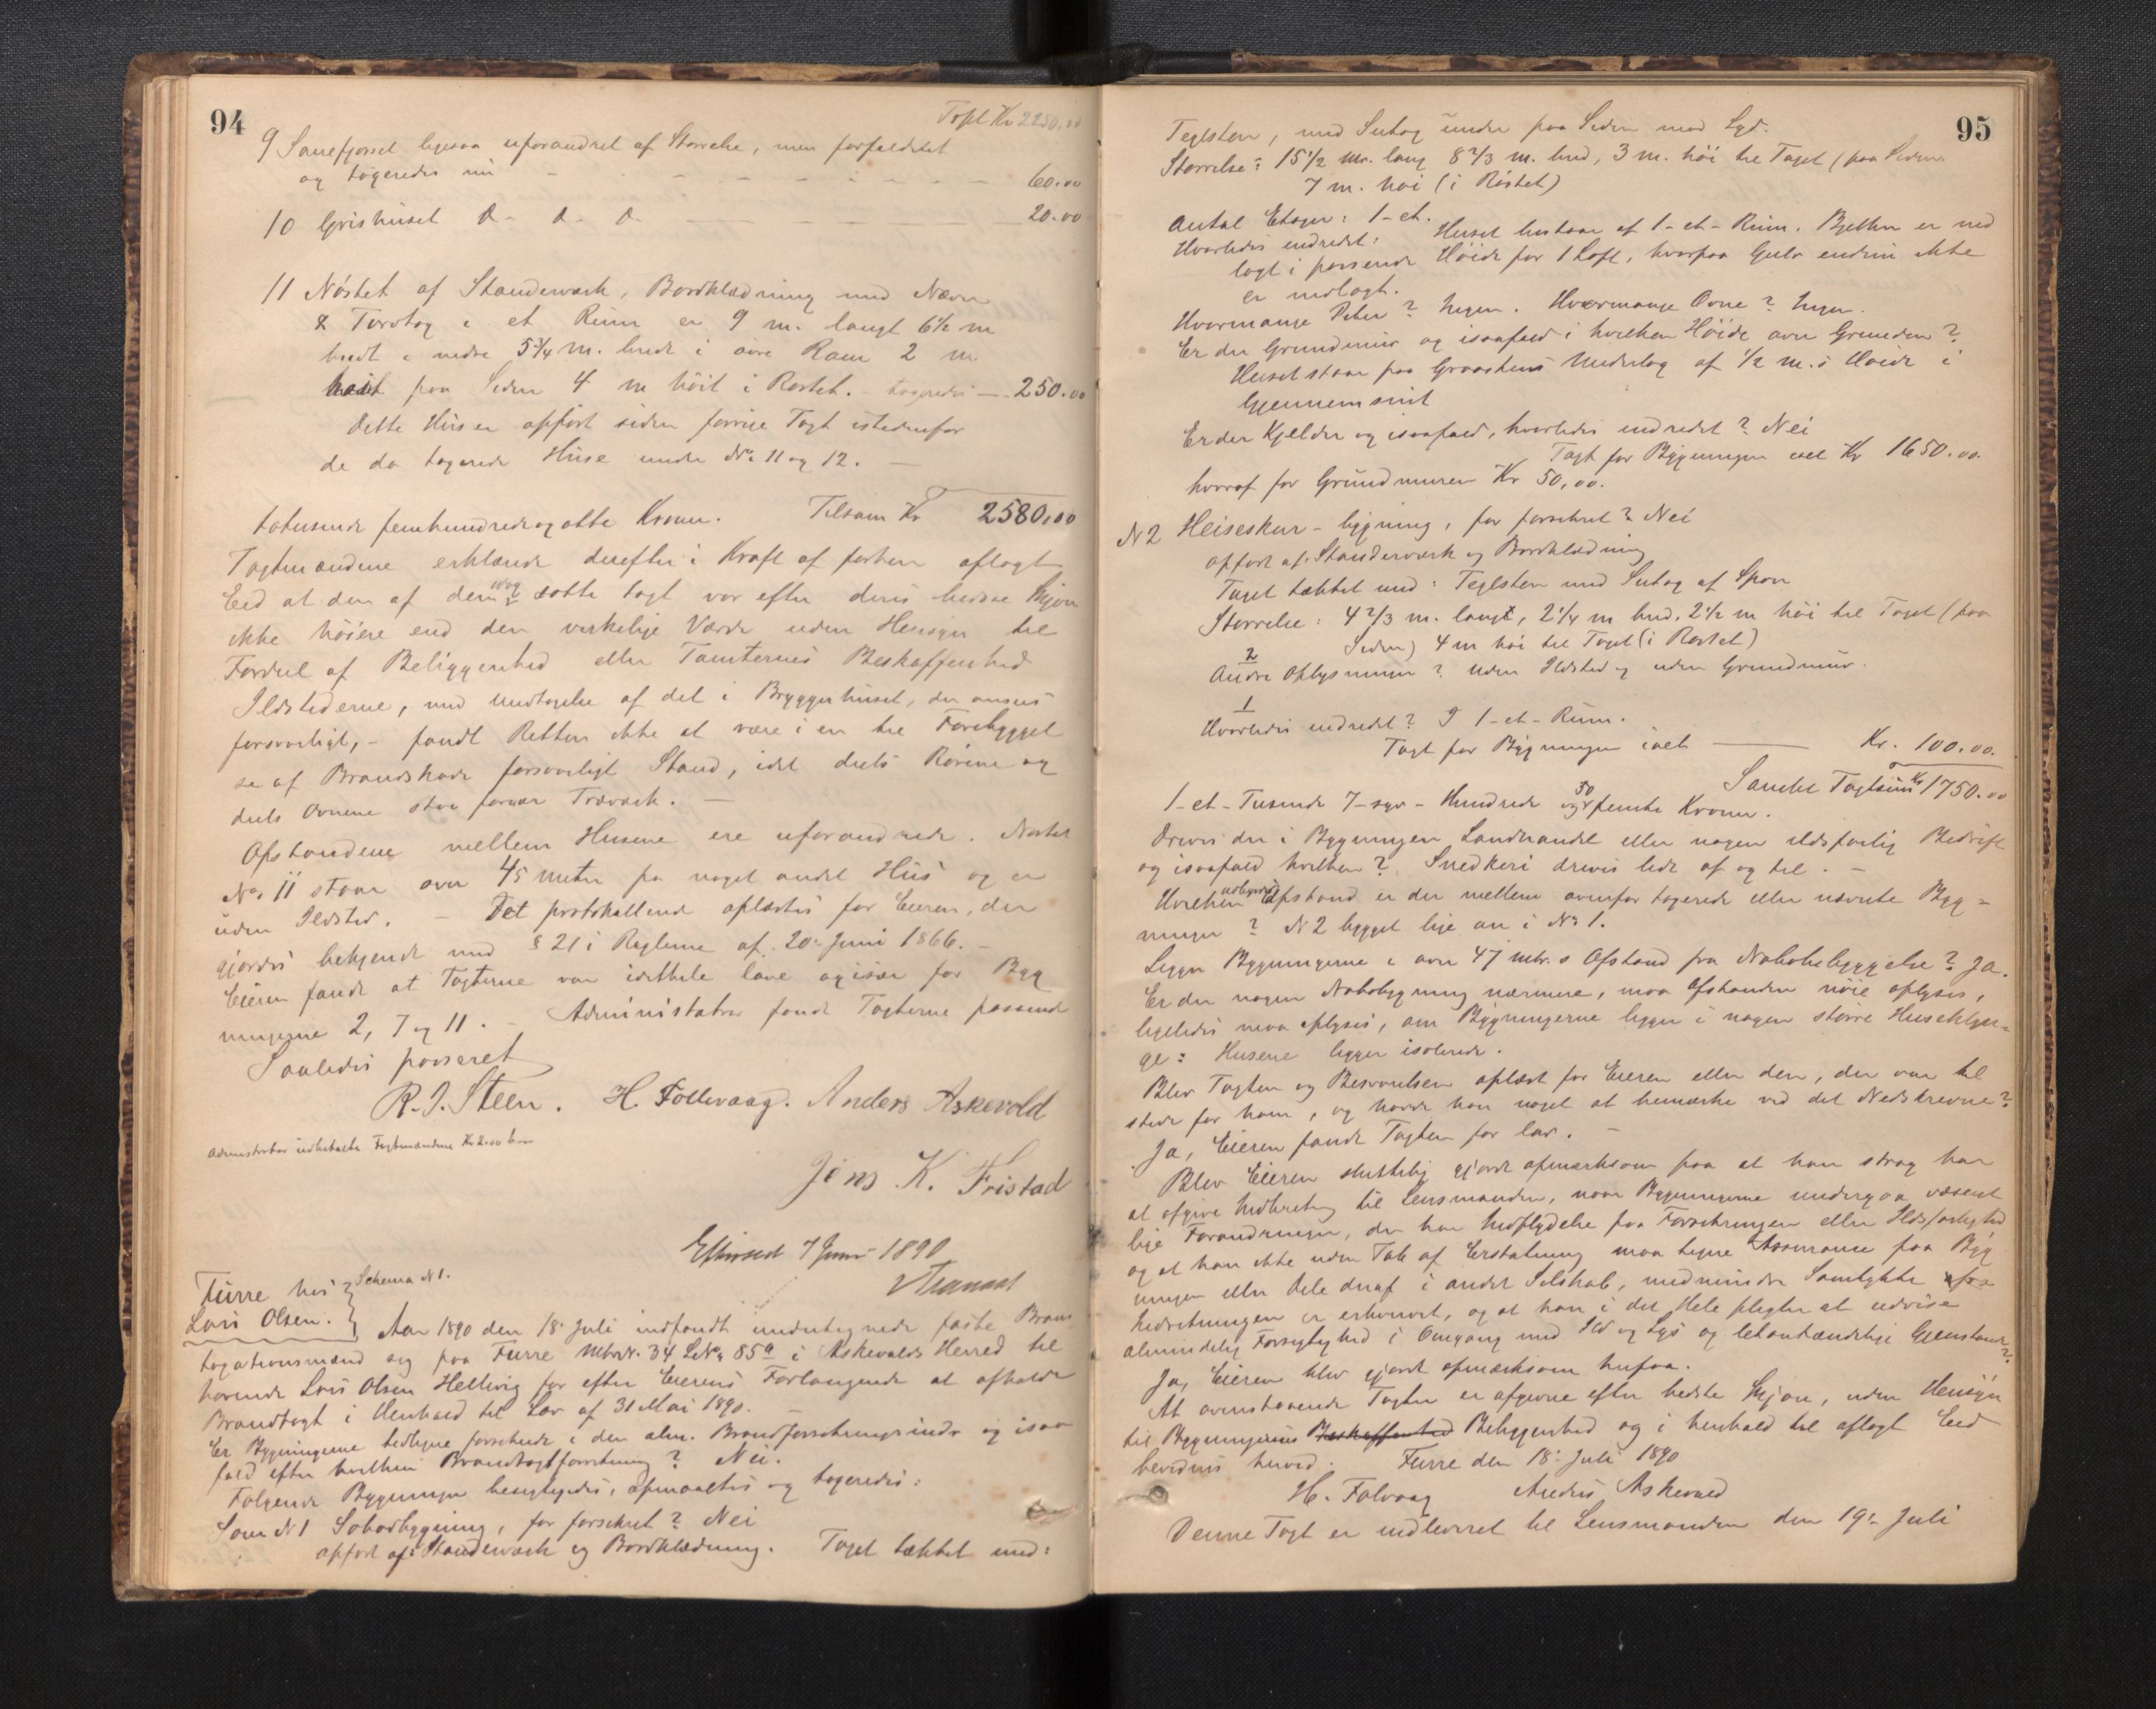 94
Tspt Kr 2250.00
9 Sauefjøset ligesaa uforandret af Størrelse, men forfaldent
og taxeredes nu - - - - - - - - 60.00
10 Grishuset D- D- D. 20.00
11 Nøstet af Standerværk, Bordklædning med Næver
& Torvtag i et Rum er 9 m. langt 6½ m
bredt i nedre 5¾ m. bredt i øvre Ram 2 m.
høit paa Siden 4 m høit i Røstet. - taxeredes - 250.00
Dette Hus er opført siden forrige Taxt istedenfor
de da taxerede Huse under No 11 og 12. -
totusinde femhundredeogotte Kroner. Tilsam Kr 2580,00
Taxtmændene erklærede derefter i Kraft af forhen aflagt
Eed at den af dem idag satte taxt var efter deres bedste Skjøn
ikke høiere end den virkelige Værdi uden Hensyn til
Fordeel af Beliggenhed eller Tomternes Beskaffenhed
Ildstederne, med Undtagelse af det i Bryggerhuset, der ansees
forsvarligt, - fandt Retten ikke at være i en til Forebyggel
se af Brandskade forsvarligt Stand, idet dels Rørene og
dels Ovnene staa for nær Træværk. -
Afstandene mellem Husene ere uforandrede. Nøstet
No 11 staar over 45 meter fra noget andet Hus og er
uden Ildsted. - Det protokollerede oplæstes for Eieren, der
gjordes bekjendt med § 21 i Reglerne af 20de Juni 1866. -
Eieren fandt at Taxterne var idethele lave og især for Byg
ningerne 2, 7 og 11. - Administrator fandt Taxterne passende
Saaledes passeret
R. J. Steen. H. Follevaag. Anders Askevold
Administrator udbetalte Taxtmændene Kr 2.00 hver
Jens K. Fristad
Efterseet 7 Juni 1890
Furre hos } Schema No 1.
Lars Olsen. } Aar 1890 den 18de Juli indfandt undertegnede faste Brand
taxationsmænd sig paa Furre Mtrno. 34 LNo 85a i Askevolds Herred til
hørende Lars Olsen Hellevig for efter Eierens Forlangende at afholde
Brandtaxt i Henhold til Lov af 31 Mai 1890. -
Er Bygningerne tidligere forsikrede i den alm. Brandforsikringsindr og isaa
fald efter hvilken Brandtaxtforretning? Nei.
Følgende Bygninger besigtigedes, opmaaltes og taxeredes:
Som No 1 Søbodbygning, før forsikret? Nei
opført af: Standerværk og Bordklædning. Taget tækket med:
95
Teglsten, med Sutag under paa Siden mod Syd.
Størrelse: 15½ m. lang 8⅔ m. bred, 3 m. høi til Taget (paa Siden)
7 m. høi (i Røstet)
Antal Etager: 1-et.
Hvorledes indredet: Huset bestaar af 1-et-Rum. Bjelker er ned
lagt i passende Høide for 1 Loft, hvorpaa Gulv endnu ikke
er nedlagt.
Hvormange Piber? Ingen. Hvormange Ovne? Ingen.
Er der Grundmur og isaafald i hvilken Høide over Grunden?
Huset staar paa Graastens Underlag af ½ m.s Høide i
Gjennemsnit
Er der Kjelder og isaafald, hvorledes indredet? Nei
Taxt for Bygningen ialt Kr 1650.00.
hvoraf for Grundmuren Kr 50,00.
N 2 Heiseskur-bygning, før forsikret? Nei
opført af. Standerværk og Bordklædning
Taget tækket med: Teglsten med Sutag af Spon
Størrelse: 4⅔ m. langt, 2¼ m bred, 2½ m høi til Taget (paa
Siden) 4 m høi til Taget (i Røstet)
2
Andre Oplysninger? uden Ildsted og uden Grundmur.
1
Hvorledes indredet? I 1-et-Rum.
Taxt for Bygningen ialt Kr. 100.00.
Samlet Taxtsum Kr 1750.00
1-et-Tusinde 7-syv-Hundrede og 50 femti Kroner.
Drives der i Bygningen Landhandel eller nogen ildsfarlig Bedrift
og isaafald hvilken? Snedkeri drives lidt af og til. -
Hvilken indbyrdes Afstand er der mellem ovenfor taxerede eller nævnte Byg-
ninger? N 2 bygget lige an i No 1.
Ligger Bygningerne i over 47 mtr.s Afstand fra Nabobebyggelse? Ja.
Er der nogen Nabobygning nærmere, maa Afstanden nøie oplyses,
ligeledes maa oplyses, om Bygningerne ligger i nogen større Huseklyn-
ge: Husene ligger isolerede.
Blev Taxten og Besvarelsen oplæst for Eieren eller den, der var til
stede for ham, og havde han noget at bemærke ved det Nedskrevne?
Ja, Eieren fandt Taxten for lav. -
Blev Eieren skriftlig gjort opmærksom paa at han strax har
at afgive Indberetng til Lensmanden, naar Bygningerne undergaa væsent
lige Forandringer, der har Indflydelse paa Forsikringen eller Ildsfarlighed
og at han ikke uden Tab af Erstatning maa tegne Assurance paa Byg
ningen eller Dele deraf i andet Selskab, medmindre Samtykke fra
Indretningen er erhvervet, og at han i det Hele pligter at udvise
almindelig Forsigtighed i Omgang med Ild og Lys og letantændelige Gjenstande?
Ja, Eieren blev gjort opmærksom herpaa.
At ovenstaaende Taxter er afgivne efter bedste Skjøn, uden Hensyn
til Bygningernes Beskaffenhed Beliggenhed og i henhold til aflagt Eed
bevidnes herved. Furre den 18de Juli 1890
H. Folvaag Anders Askevold
Denne Taxt er indleveret til Lensmanden den 19de Juli